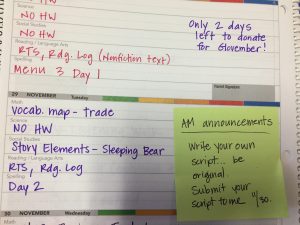 NO HW
Science
NO HW
Social Studies
NO HW
Reading / Language Arts
RTS, Rdg. Log (Nonfiction text)
Spelling
Menu 3 Day 1
Only 2 days
left to donate
for Glovember!
Parent Signature
29 NOVEMBER Tuesday
Math
Vocab. map - trade
Science
NO HW
Social Studies
Story Elements - Sleeping Bear
Reading / Language Arts
RTS, Rdg. Log
Spelling
Day 2
AM announcements
Write your own
script... be
original.
Submit your
script to me 11/30.
30 NOVEMBER Wednesday